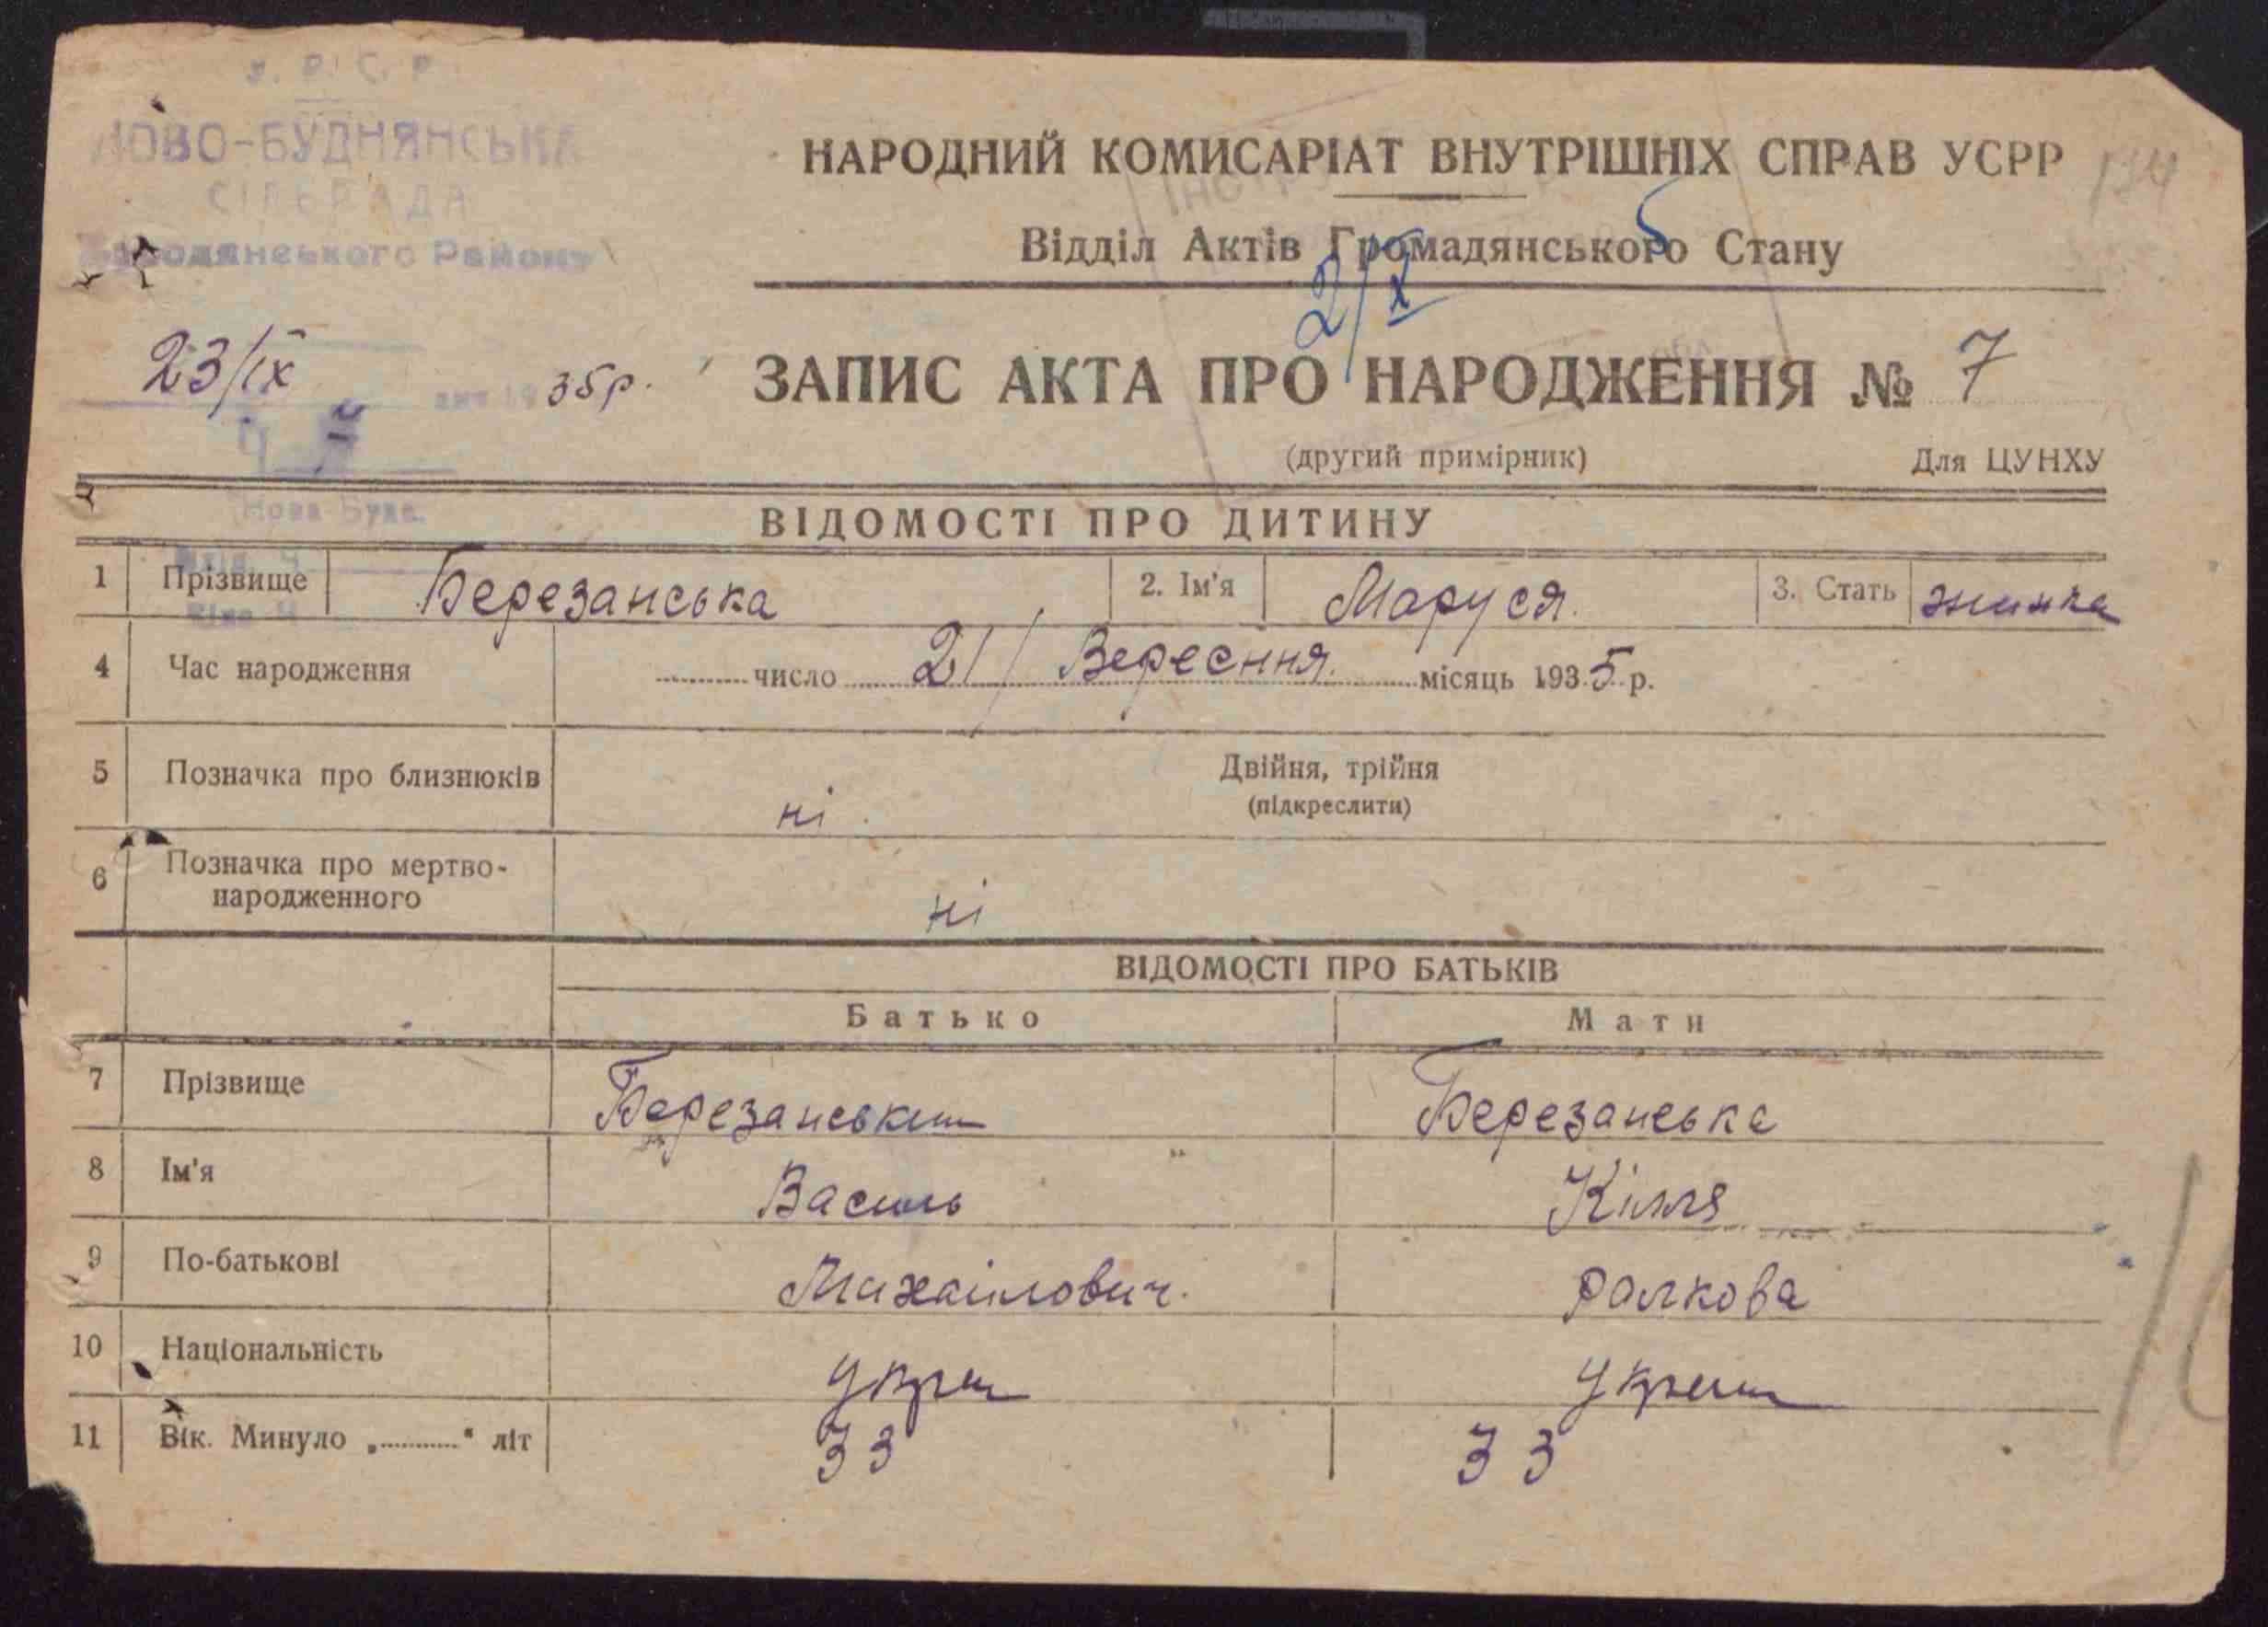 У. Р. С. Р.
НОВО-БУДНЯНСЬКА
СІЛЬРАДА
Бородянського Району
23/ІХ 35р.
Ч
Нова Буда.
НАРОДНИЙ КОМИСАРІАТ ВНУТРІШНІХ СПРАВ УСРР
134
Відділ Актів Громадянського Стану
2/X
ЗАПИС АКТА ПРО НАРОДЖЕННЯ № 7
(другий примірник) Для ЦУНХУ
ВІДОМОСТІ ПРО ДИТИНУ
1 Прізвище Березанська 2. Ім'я Маруся. 3. Стать жинка
4 Час народження число 21/ Вересння. місяць 1935 р.
5 Позначка про близнюків ні. Двійня, трійня
(підкреслити)
6 Позначка про мертво-
народженного ні
ВІДОМОСТІ ПРО БАТЬКІВ
Батько Мати
7 Прізвище Березанський Березанська
8 Ім'я Василь
9 По-батькові Михаілович.
10 Національність
11 Вік. Минуло „ “ літ 33 33